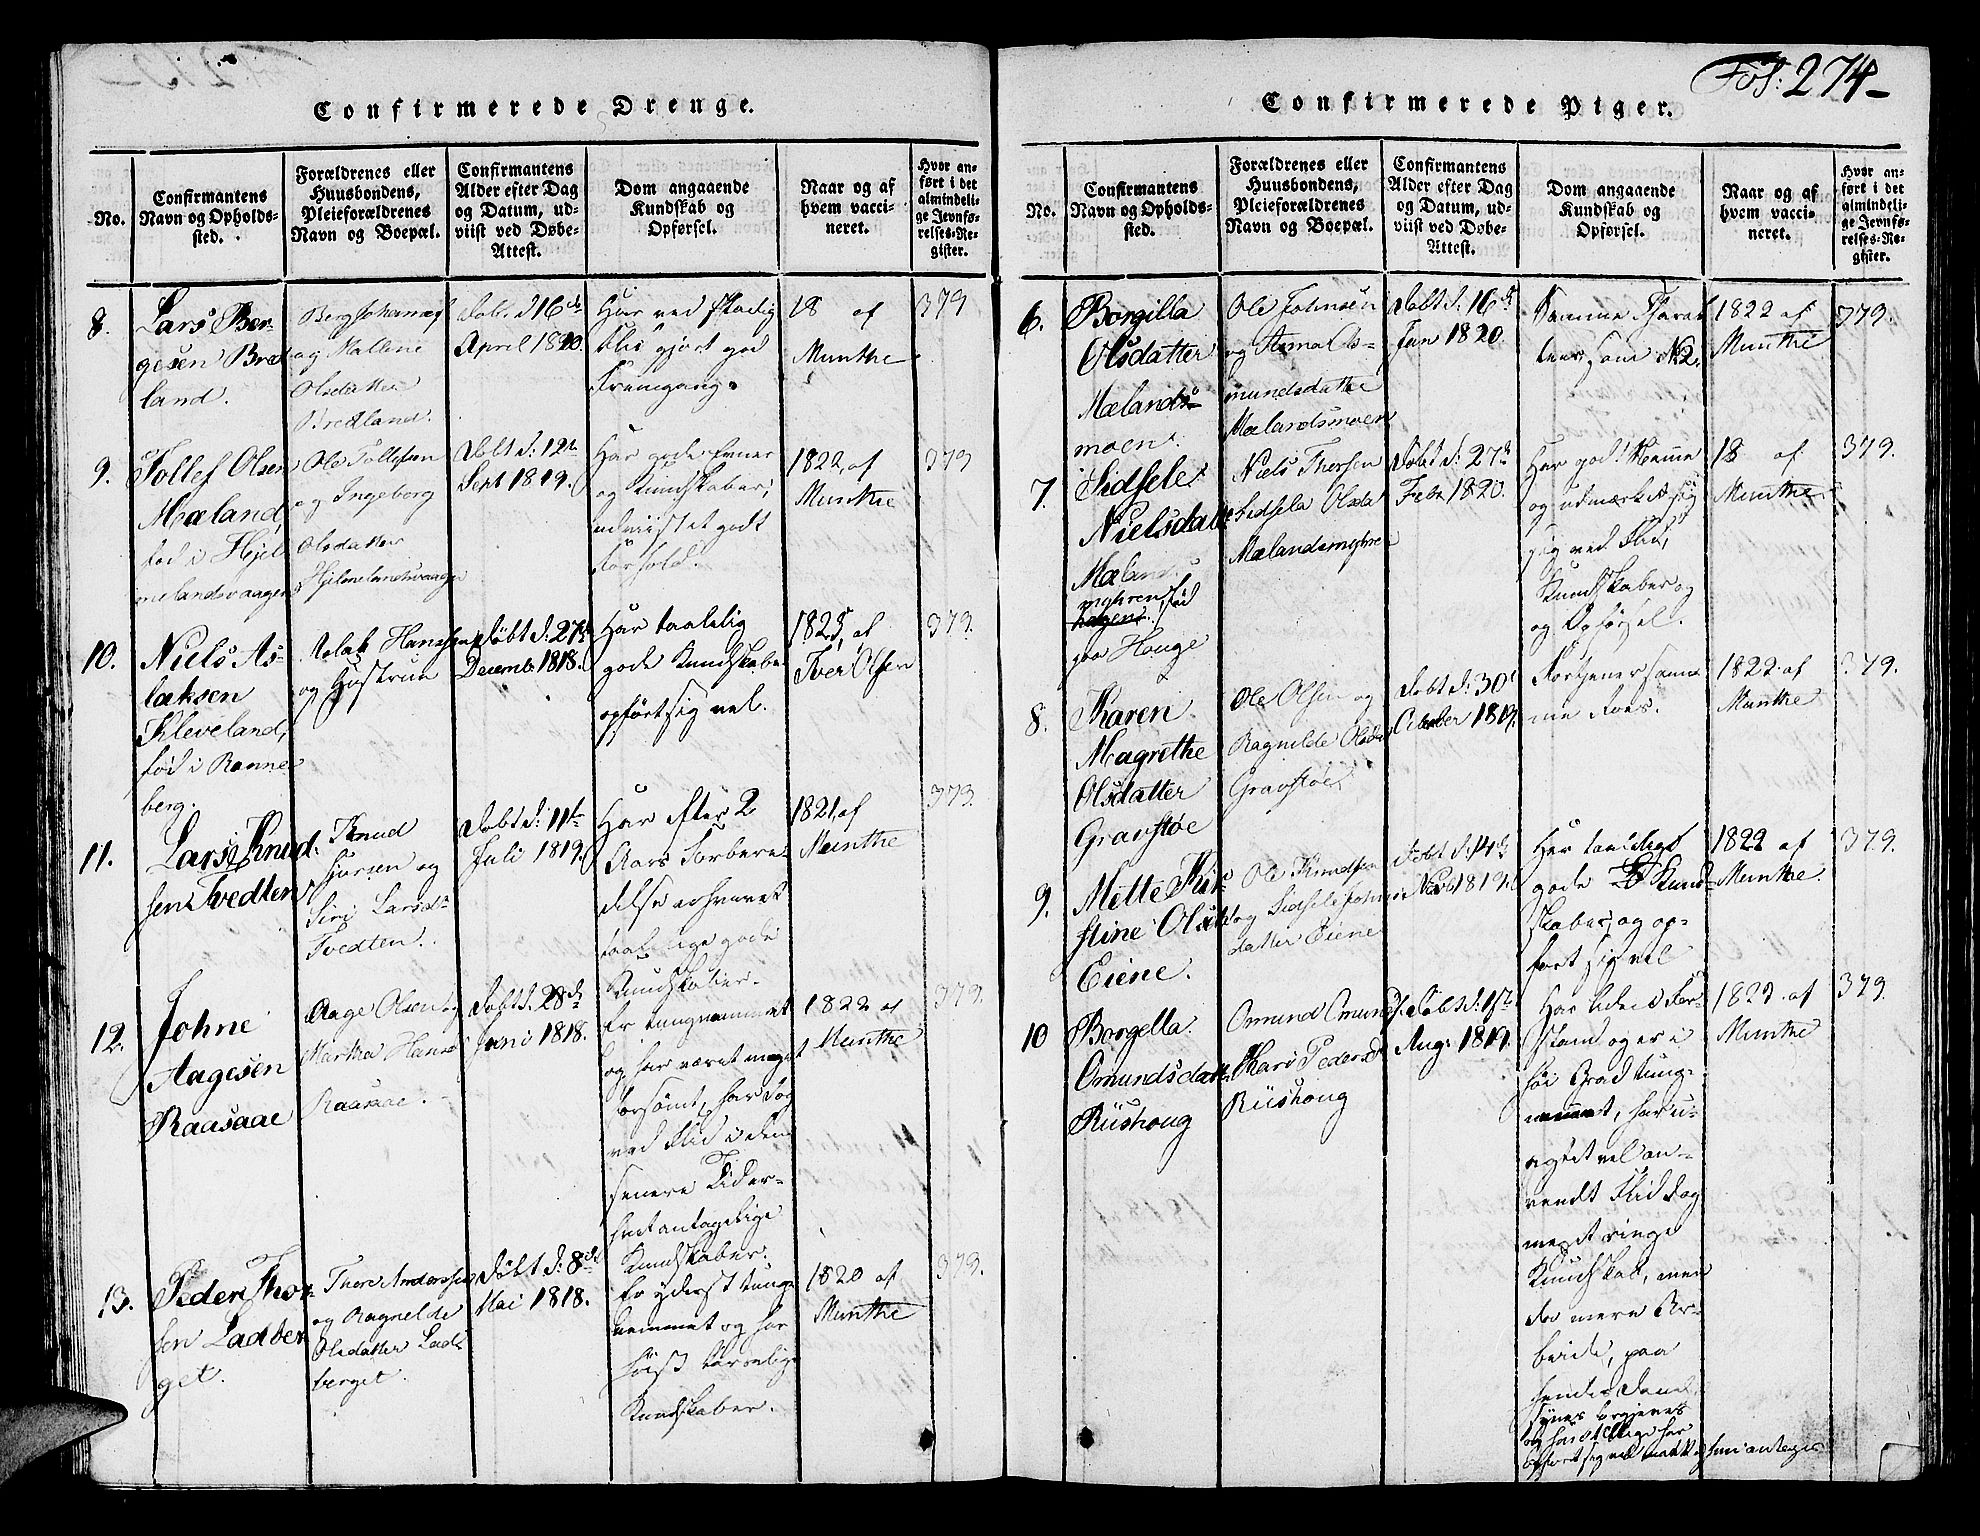 Fol. 274
Confirmerede Drenge.
No.
Confirmantens
Navn og Opholds-
sted.
Forældrenes eller
Huusbondens,
Pleieforældrenes
Navn og Boepæl.
Confirmantens
Alder efter Dag
og Datum, ud-
viist ved Døbe-
Attest.
Dom angaaende
Kundskab og
Opførsel.
Naar og af
hvem vacci-
neret.
Hvor an-
ført i det
almindeli-
ge Jevnfø-
relses-Re-
gister.
8.
Lars Ber-
gesen Bret-
land.
Berg Johannes
og Mallene
Olsdatter
Bretland.
Døbt d. 16de
April 1820.
Har ved stadig
Flid gjort god
Fremgang.
18 af
Munthe
379
9.
Tollef Olsen
Mæland,
fød i Hjel-
melandsvaagen
Ole Tollefsen
og Ingeborg
Olsdatter
Hjelmelandsvaage
Døbt d: 12te
Sept 1819.
Har gode Evner
og Kundskaber,
udviist et godt
Forhold.
1822 af
Munthe
379
10.
Niels As-
laksen
Kleveland,
fød i Renne-
berg.
Aslak Hansen
og Gustrun
Døbt d: 27de
Decemb 1818.
Har taalelig
gode Kundskaber
opført sig vel.
1825, af
Iver Olsen
379.
11.
Lars Knud-
sen Tvedten
Knud
og
Siri Larsdr
Tvedten.
Døbt d: 11te
Juli 1819.
Har efter 2
Aars Forbere-
delse erhvervet
taalelige gode
Kundskaber.
1821 af
Munthe
379.
12.
Johne
Aagesen
Raasaae
Aage Olsen og
Martha Hans
Raasaae.
Døbt d. 28de
Juni 1818.
Er tungnemmet
og har været meget
forsømt, har dog
ved Flid i den
senere Tid er-
hvet antagelige
Kundskaber.
1822 af
Munthe
379.
13.
Peder Thor-
sen Ladber-
get.
Thore Anderssen
og Ragnelde
Olsdatter Lad-
berget.
Døbt d: 8de
Mai 1818.
Er yderst tung-
nemmet og har
høist tarvelige
Kundskaber.
1820 af
Munthe
379.
Confirmerede Piger.
No.
Confirmantens
Navn og Opholds-
sted.
Forældrenes eller
Huusbondens,
Pleieforældrenes
Navn og Boepæl.
Confirmantens
Alder efter Dag
og Datum, ud-
viist ved Døbe-
Attest.
Dom angaaende
Kundskab og
Opførsel.
Naar og af
hvem vacci-
neret.
Hvor an-
ført i det
almindeli-
ge Jevnfø-
relses-Re-
gister.
6.
Borgilla
Olsdatter
Mælands-
moen.
Ole Johnsen
og Anna Os-
mundsdatter
Mælandsmoen
Døbt d. 16de
Jan 1820.
Samme Charac-
teer som No 2.
1822 af
Munthe
379.
7.
Sidsele
Nielsdatter
Mælands-
myhren, fød
paa Houge
Niels Thorsen
Sidsela Olsda
Mælandsmyhre
Døbt d: 27de
Febr 1820.
Har god Nemme
og udmærket sig
sig ved Flid,
Kundskaber og
og Opførsel.
18 af
Munthe
379.
8.
Karen
Magrethe
Olsdatter
Gravstøe
Ole Olsen og
Ragnilde Olsda
Gravstøe
Døbt d: 30te
October 1819.
Fortjener sam-
me Roes.
1822 af
Munthe
379.
9.
Mette Kir-
stine Olsd
Eiene.
Ole Knudsen
og Sidsele Johns-
datter Eiene
Døbt d. 14de
Novb 1819.
Har taaleligt
gode Kund-
skaber og op-
ført sig vel
1822 af
Munthe.
379.
10
Borgella
Omundsdatt
Riishoug
Omund Omunds
Kari Pedersd
Riishoug
Døbt d: 1ste
Aug: 1819.
Har liden For-
stand og er i
høi Grad tung-
nemmet, har u-
agtet vel an-
vendt Flid dog
meget ringe
Kundskab, men
da mere Ar-
beide, paa
hende
synes forgjeves
og har
opført sig vel
1822 af
Munthe
379.